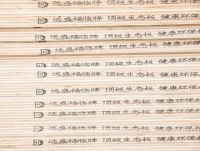 远盛福临牌 顶级生态板 健康环保
远盛福临牌 顶级生态板 健康环保
远盛福临牌 顶级生态板 健康环保
远盛福临牌 顶级生态板 健康环保
远盛福临牌 顶级生态板 健康环保
远盛福临牌 顶级生态板 健康环保
远盛福临牌 顶级生态板 健康环保
远盛福临牌 顶级生态板 健康环保
远盛福临牌 顶级生态板 健康环保